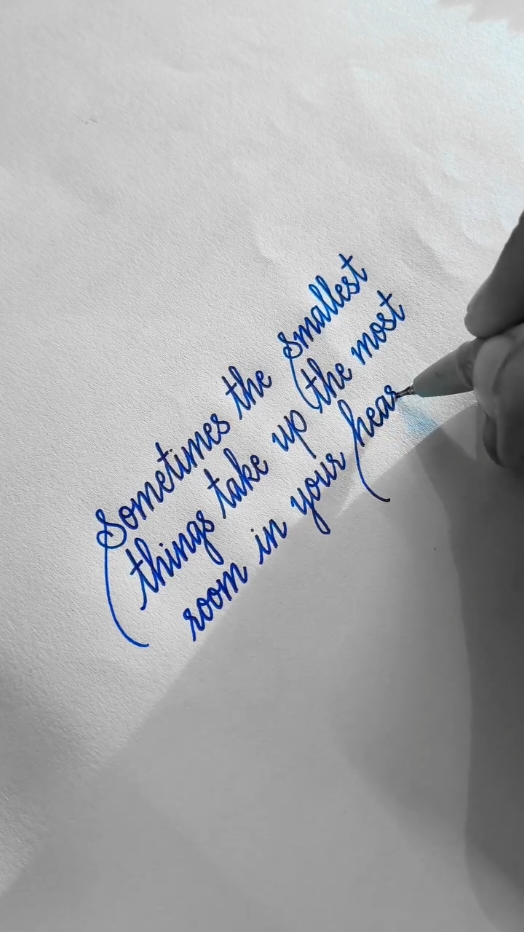 Sometimes the smallest
things take up the most
room in your hear